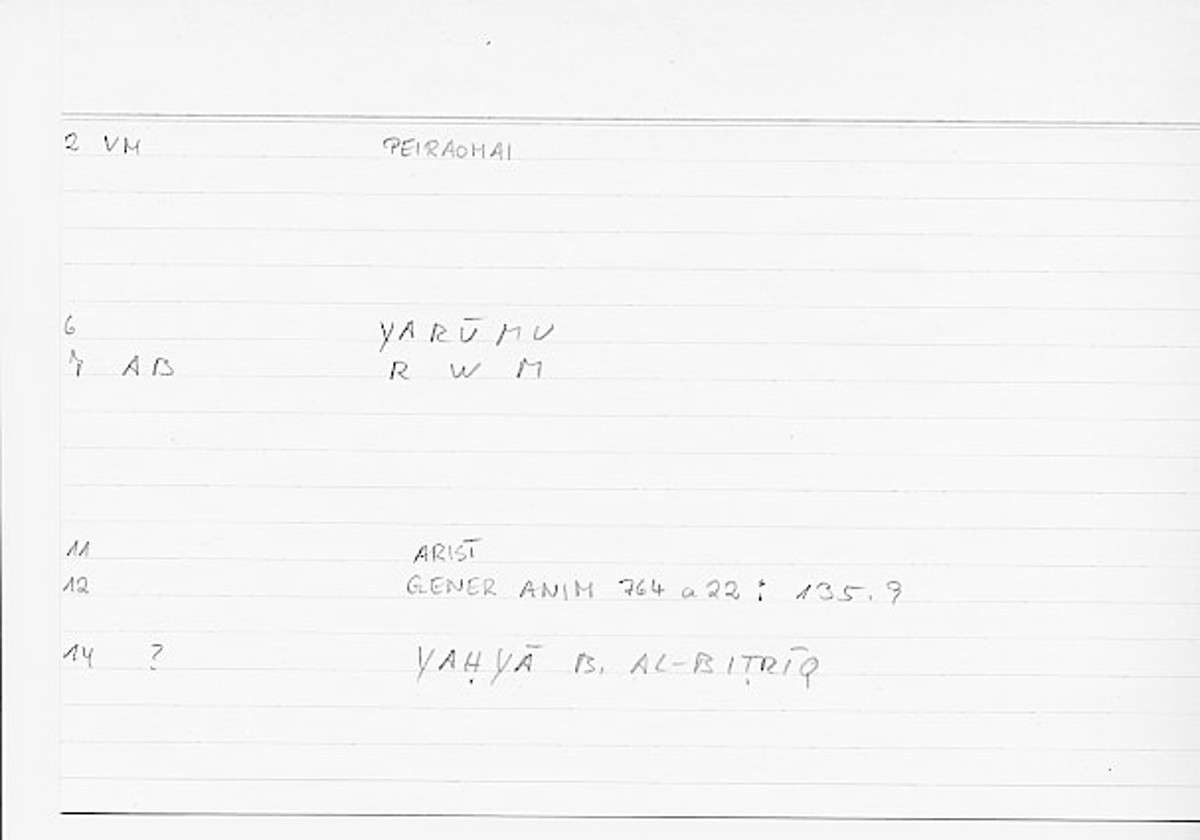 2 VM PEIRAOMAI
6 YARŪMU
7 AB R W M
11 ARIST
12 GENER ANIM 764 a 22 : 135.9
14 ? YAḤYĀ B. AL-BIṬRĪQ